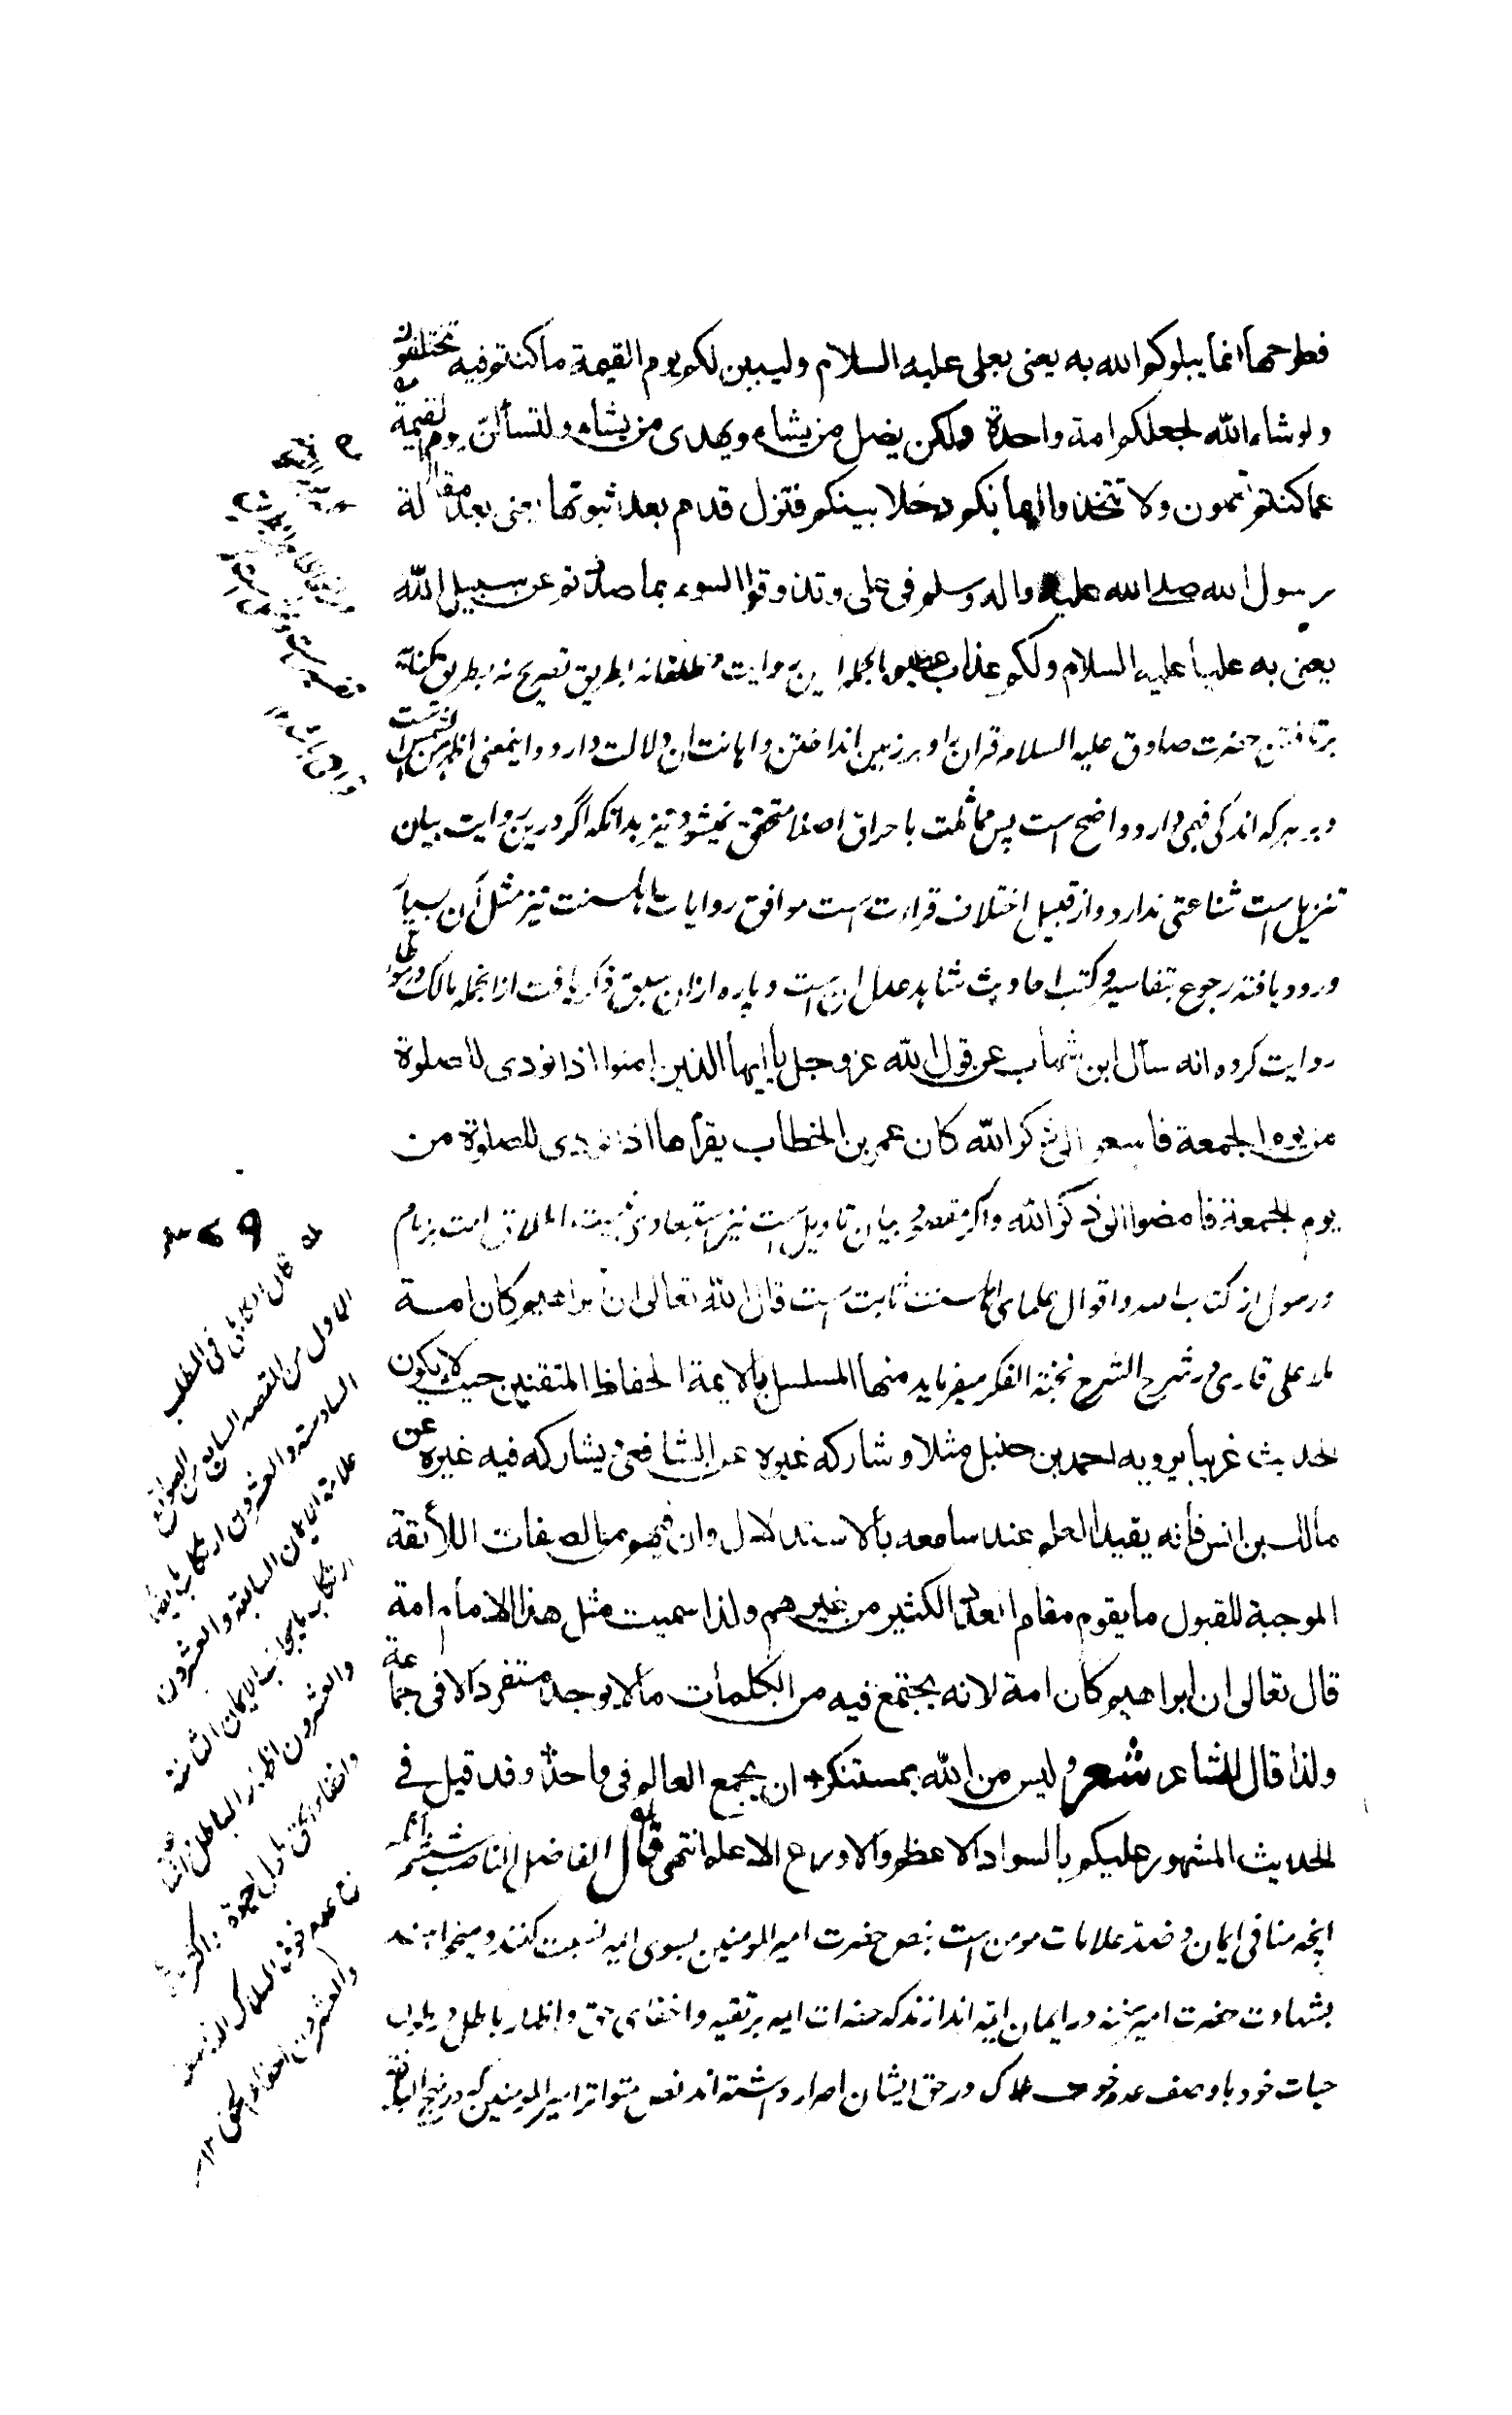 فطرحها انما يبلوكم الله به يعنى بعلى عليه السلام وليبين لكم يوم القيمة ما كنتم فيه تختلفون
ولو شاء الله لجعلكم امة واحدة ولكن يضل من يشاء ويهدى من يشاء ولتسألن يوم القيمة
عما كنتم تعملون ولا تتخذوا ايمانكم دخلا بينكم فتزل قدم بعد ثبوتها يعنى بعد مقالة
رسول الله صلى الله عليه واله وسلم فى على وتذوقوا السوء بما صددتم عن سبيل الله
يعنى به عليا عليه السلام ولكم عذاب عظيم بالجمله اين روايت مطلقا نه بطريق تصريح نه بطريق كنايه
بر تافتن حضرت صادق عليه السلام قران را و بر زمين انداختن و اهانت ان دلالت دارد و اينمعنى اظهر من الشمس است
و بر هر كه اندكى فهمى دارد واضح است پس مماثلت با احراق اصلا متحقق نميشود نيز بدانكه اگر درين روايت بيان
تنزيل است شناعتى ندارد و از قبيل اختلاف قراءت است موافق روايات اهلسنت نيز مثل آن بسيار
ورود يافته رجوع بتفاسير و كتب احاديث شاهد عدل ان است و پاره ازان سبق ذكر يافت ازانجمله مالك در موطا
روايت كرده انه سأل ابن شهاب عن قول الله عز وجل يا ايها الذين امنوا اذا نودى للصلوة
من يوم الجمعة فاسعوا الى ذكر الله كان عمر بن الخطاب يقرأها اذا نودى للصلوة من
يوم الجمعة فامضوا الى ذكر الله و اگر مقصود بيان تاويل است نيز استبعادى نيست اطلاق امت بر امام
و رسول از كتاب الله و اقوال علماى اهلسنت ثابت است قال الله تعالى ان ابراهيم كان امة
ملا على قارى در شرح الشرح نخبة الفكر ميفرمايد منها المسلسل بالايمة الحفاظ المتقنين حيث لا يكون
الحديث غريبا يرويه احمد بن حنبل مثلا وشاركه غيره عن الشافعى يشاركه فيه غيره عن
مالك بن انس فانه يفيد العلم عند سامعه بالاستدلال وان فيهم من الصفات اللائقة
الموجبة للقبول ما يقوم مقام العدد الكثير من غيرهم ولذا سميت مثل هذا الامام امة
قال تعالى ان ابراهيم كان امة لانه يجتمع فيه من الكلمات ما لا يوجد متفردا الا فى جماعة
ولذا قال الشاعر شعر و ليس من الله بمستنكر ان يجمع العالم فى واحد وقد قيل فى
الحديث المشهور عليكم بالسواد الاعظم والاورع الاعلم انتهى قال الفاضل الناصب
انچه منافى ايمان و ضد علامات مومن است بنص حضرت امير المومنين بسوى ايمه نسبت كنند و ميخواهند
بشهادت حضرت امير رخنه در ايمان ايمه اندازند كه حضرات ايمه بر تقيه و اخفاى حق و اظهار باطل در طول
حيات خود با وصف عدم خوف هلاك در حق ايشان اصرار داشته اند نص متواتر امير المومنين كه در نهج البلاغه
قال الكابلى فى المطلب
الاول من المقصد السابع من الصواقع
السادسة والعشرون ارتكاب
علامة الايمان السابعة والعشرون
ارتكاب ما يجانب الايمان الثامنة
والعشرون اظهار الباطل
واخفاء الحق
مع عدم خوف الهلاك
والعشرون اخفاء الحق ١٢